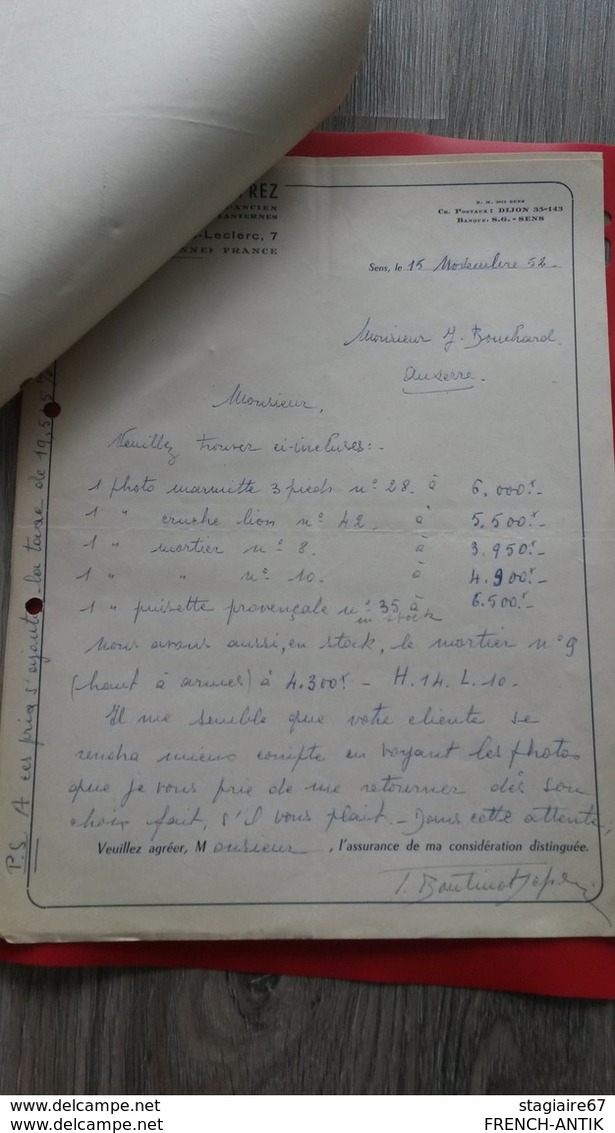 REZ
ANCIEN
LANTERNES
-Leclerc, 7
NNE) FRANCE
R. M. 2011 SENS
Ch. Postaux : DIJON 35-143
Banque: S.G. - SENS
Sens, le 15 Novembre 52.-
Monsieur J. Bouchard.
Auxerre.
Monsieur,
Veuillez trouver ci-incluses:-
1 photo marmitte 3 pieds n° 28. à 6.000f.-
1 " cruche lion n° 42. à 5.500f.-
1 " mortier n° 8. à 3.950f.-
1 " " n° 10. à 4.900f.-
1 " puisette provençale n° 35 à 6.500f.-
en stock
Nous avons aussi, en stock, le mortier n° 9
(haut à armes) à 4.300f. - H.14. L.10.
Il me semble que votre cliente se
rendra mieux compte en voyant les photos
que je vous prie de me retourner dès son
choix fait, s'il vous plait. - Dans cette attente,
Veuillez agréer, Monsieur, l'assurance de ma considération distinguée.
P.S A ces prix s'ajoute la taxe de 19,5,5%
stagiaire67
FRENCH-ANTIK